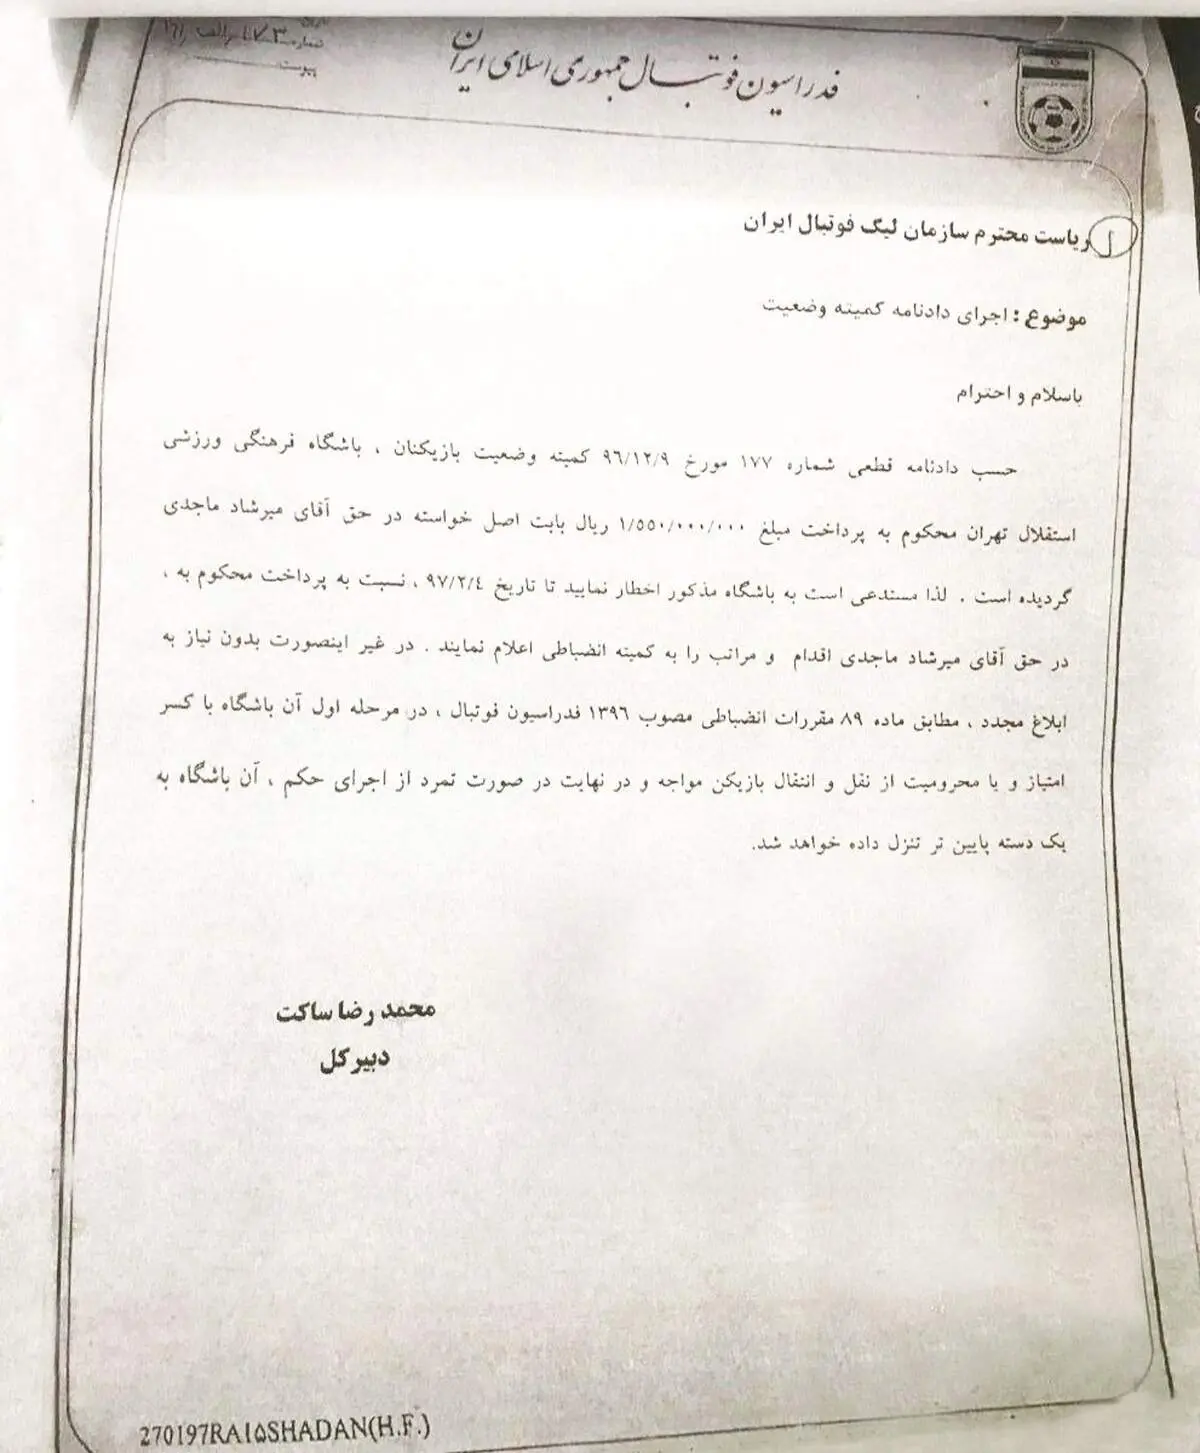 فدراسیون فوتبال جمهوری اسلامی ایران
تاریخ
شماره
پیوست
ریاست محترم سازمان لیگ فوتبال ایران
موضوع : اجرای دادنامه کمیته وضعیت
باسلام و احترام
حسب دادنامه قطعی شماره ۱۷۷ مورخ ۹۶/۱۲/۹ کمیته وضعیت بازیکنان ، باشگاه فرهنگی ورزشی
استقلال تهران محکوم به پرداخت مبلغ ۱/۵۵۰/۰۰۰/۰۰۰ ریال بابت اصل خواسته در حق آقای میرشاد ماجدی
گردیده است . لذا مستدعی است به باشگاه مذکور اخطار نمایید تا تاریخ ۹۷/۲/٤ ، نسبت به پرداخت محکوم به ،
در حق آقای میرشاد ماجدی اقدام و مراتب را به کمیته انضباطی اعلام نمایند . در غیر اینصورت بدون نیاز به
ابلاغ مجدد ، مطابق ماده ۸۹ مقررات انضباطی مصوب ۱۳۹۶ فدراسیون فوتبال ، در مرحله اول آن باشگاه با کسر
امتیاز و یا محرومیت از نقل و انتقال بازیکن مواجه و در نهایت در صورت تمرد از اجرای حکم ، آن باشگاه به
یک دسته پایین تر تنزل داده خواهد شد.
محمد رضا ساکت
دبیرکل
270197RA۱۵SHADAN(H.F.)